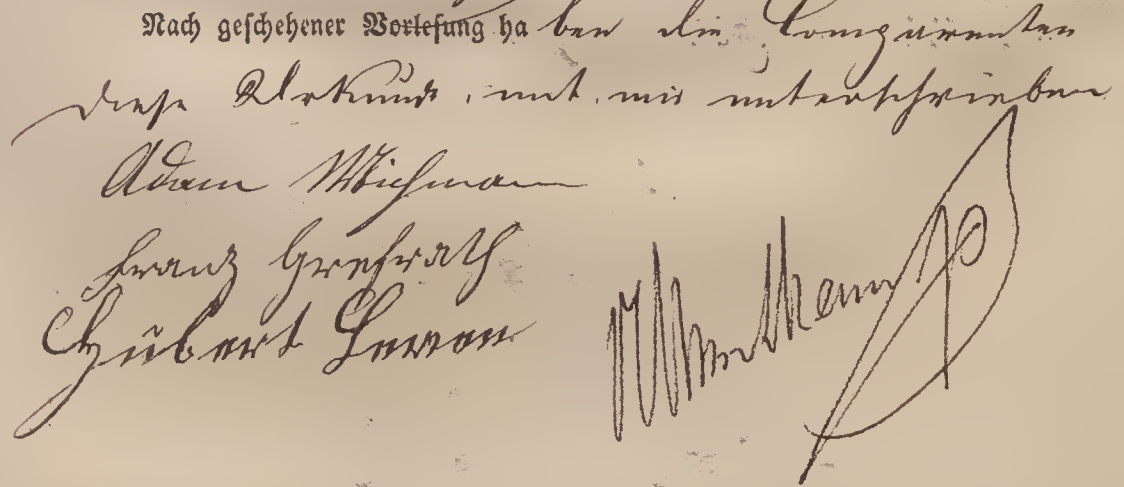 Nach geschehener Vorlesung haben die Comparenten
diese Urkunde mit mir unterschrieben
Adam Wichmann
Franz Grefrath
Hubert Leven